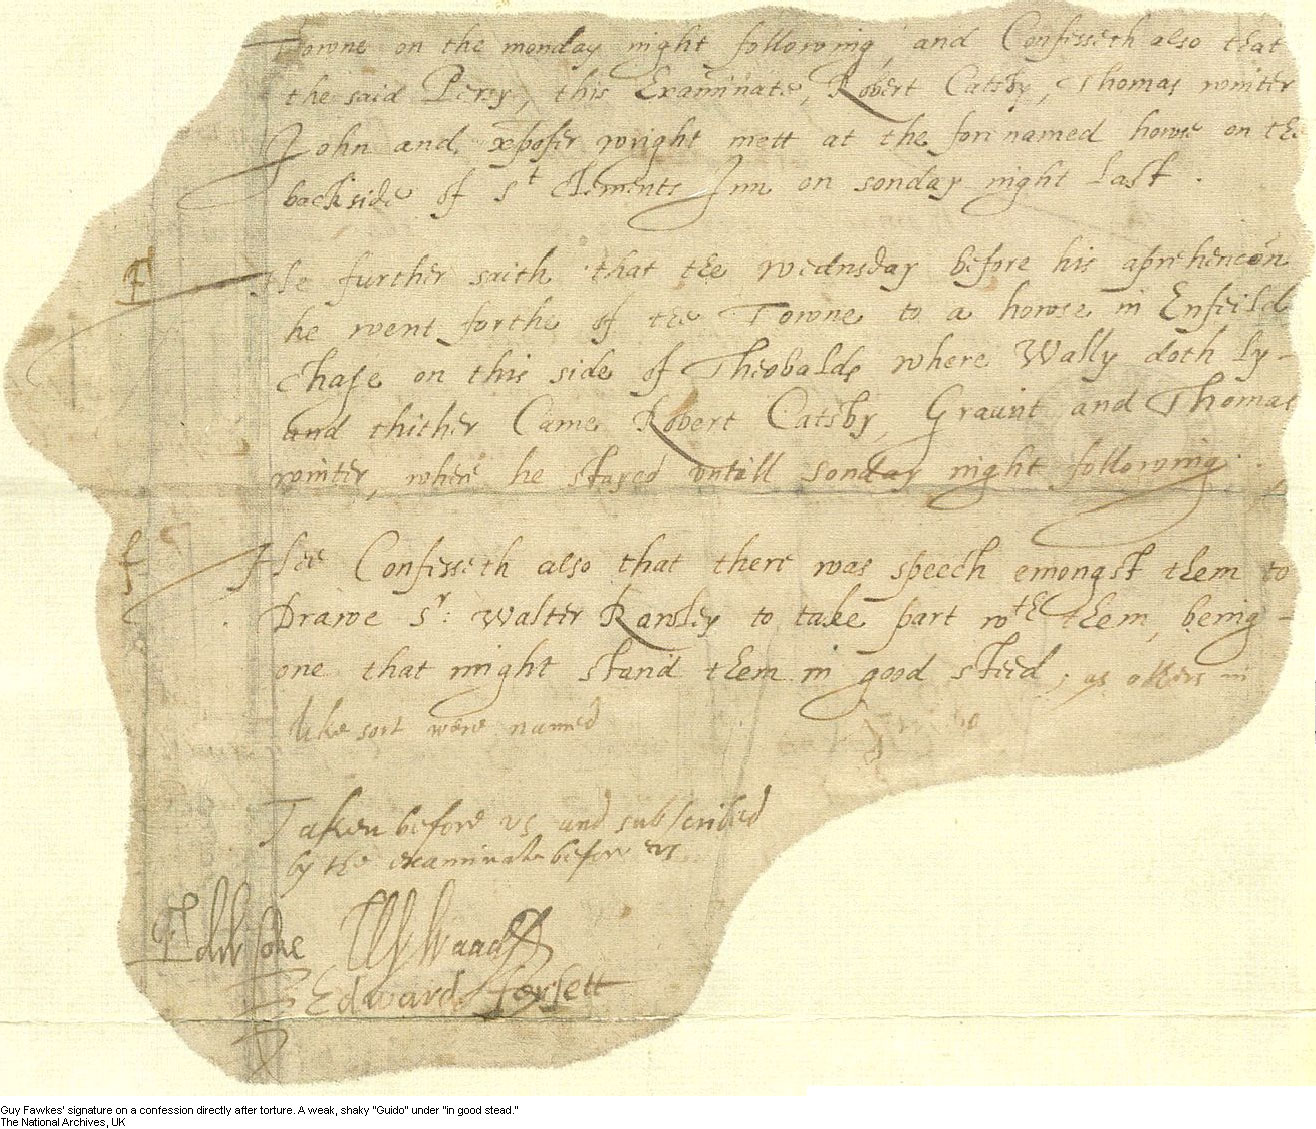 Towne on the monday night following, and Confesseth also that
the said Percy, this Examinate, Robert Catsby, Thomas winter
John and xpofer wright mett at the forenamed howse on the
backside of St Clements Inn on sonday night last.
He further saith that the wednsday before his aprehencōn
he went forthe of the Towne to a howse in Enfeild
Chase on this side of Theobalds where Wally doth ly-
and thither Came Robert Catsby, Graunt and Thomas
winter, where he stayed untill sonday night following.
Hee Confesseth also that there was speech emongst them to
Drawe Sr: Walter Rawley to take part wth them, being
one that might stand them in good steed, as others in
like sort were named
Taken before us and subscribed
by the examinate before us
Edw Coke W Waad
Edward Forsett
Guy Fawkes' signature on a confession directly after torture. A weak, shaky "Guido" under "in good stead."
The National Archives, UK